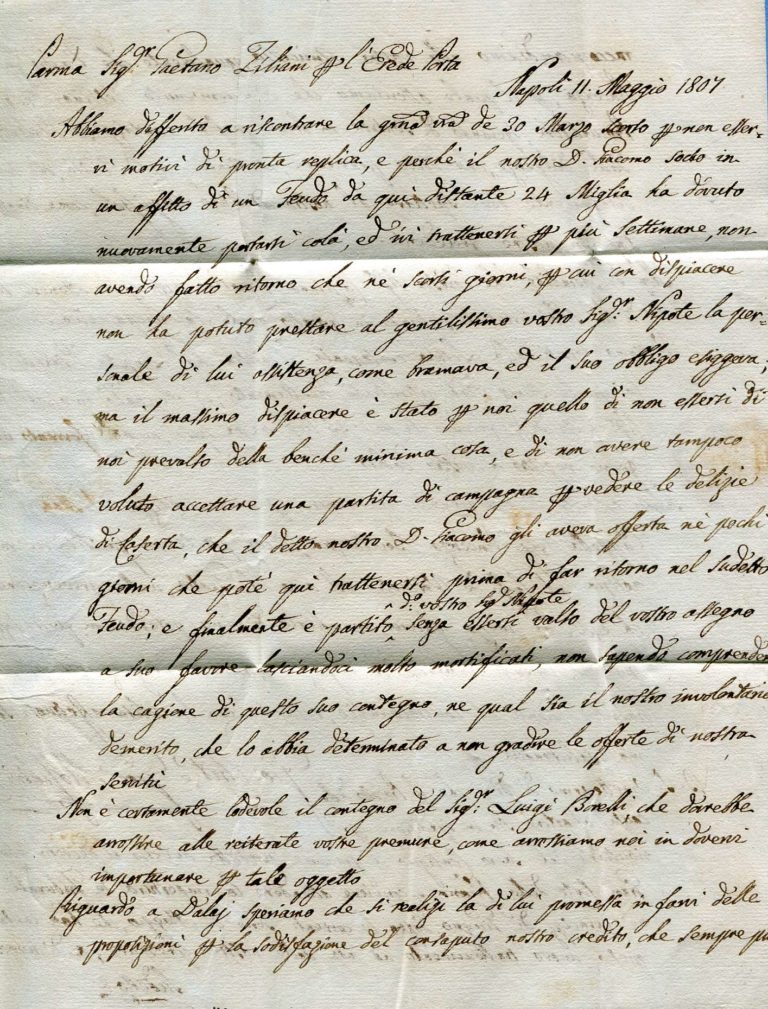 Parma Sig.r Gaetano Ziliani p l'Erede Porta
Napoli 11. Maggio 1807
Abbiamo differito a riscontrare la grma vra de 30 Marzo scorso p non esser-
vi motivi di pronta replica, e perchè il nostro D. Giacomo socio in
un affitto di un Feudo da qui distante 24 Miglia ha dovuto
nuovamente portarsi colà, ed ivi trattenersi p più settimane, non
avendo fatto ritorno che nè scorsi giorni, p cui con dispiacere
non ha potuto prestare al gentilissimo vostro Sig.r Nipote la per-
sonale di lui assistenza, come bramava, ed il suo obbligo esiggeva;
ma il massimo dispiacere è stato p noi quello di non essersi di
noi prevalso della benchè minima cosa, e di non avere tampoco
voluto accettare una partita di campagna p vedere le delizie
di Caserta, che il detto nostro D. Giacomo gli aveva offerta nè pochi
giorni che potè qui trattenersi prima di far ritorno nel sudetto
d.o vostro Sig.r Nipote
Feudo; e finalmente è partito senza essersi valso del vostro assegno
a suo favore lasciandoci molto mortificati, non sapendo comprender
la cagione di questo suo contegno, ne qual sia il nostro involontario
demerito, che lo abbia determinato a non gradire le offerte di nostra
servitù
Non è certamente lodevole il contegno del Sig.r Luigi Borelli, che dovrebbe
arrossire alle reiterate vostre premure, come arrossiamo noi in dovervi
importunare p tale oggetto
Riguardo a Dalaj speriamo che si realizi la di lui promessa in farvi delle
proposizioni p la sodisfazione del consaputo nostro credito, che sempre più